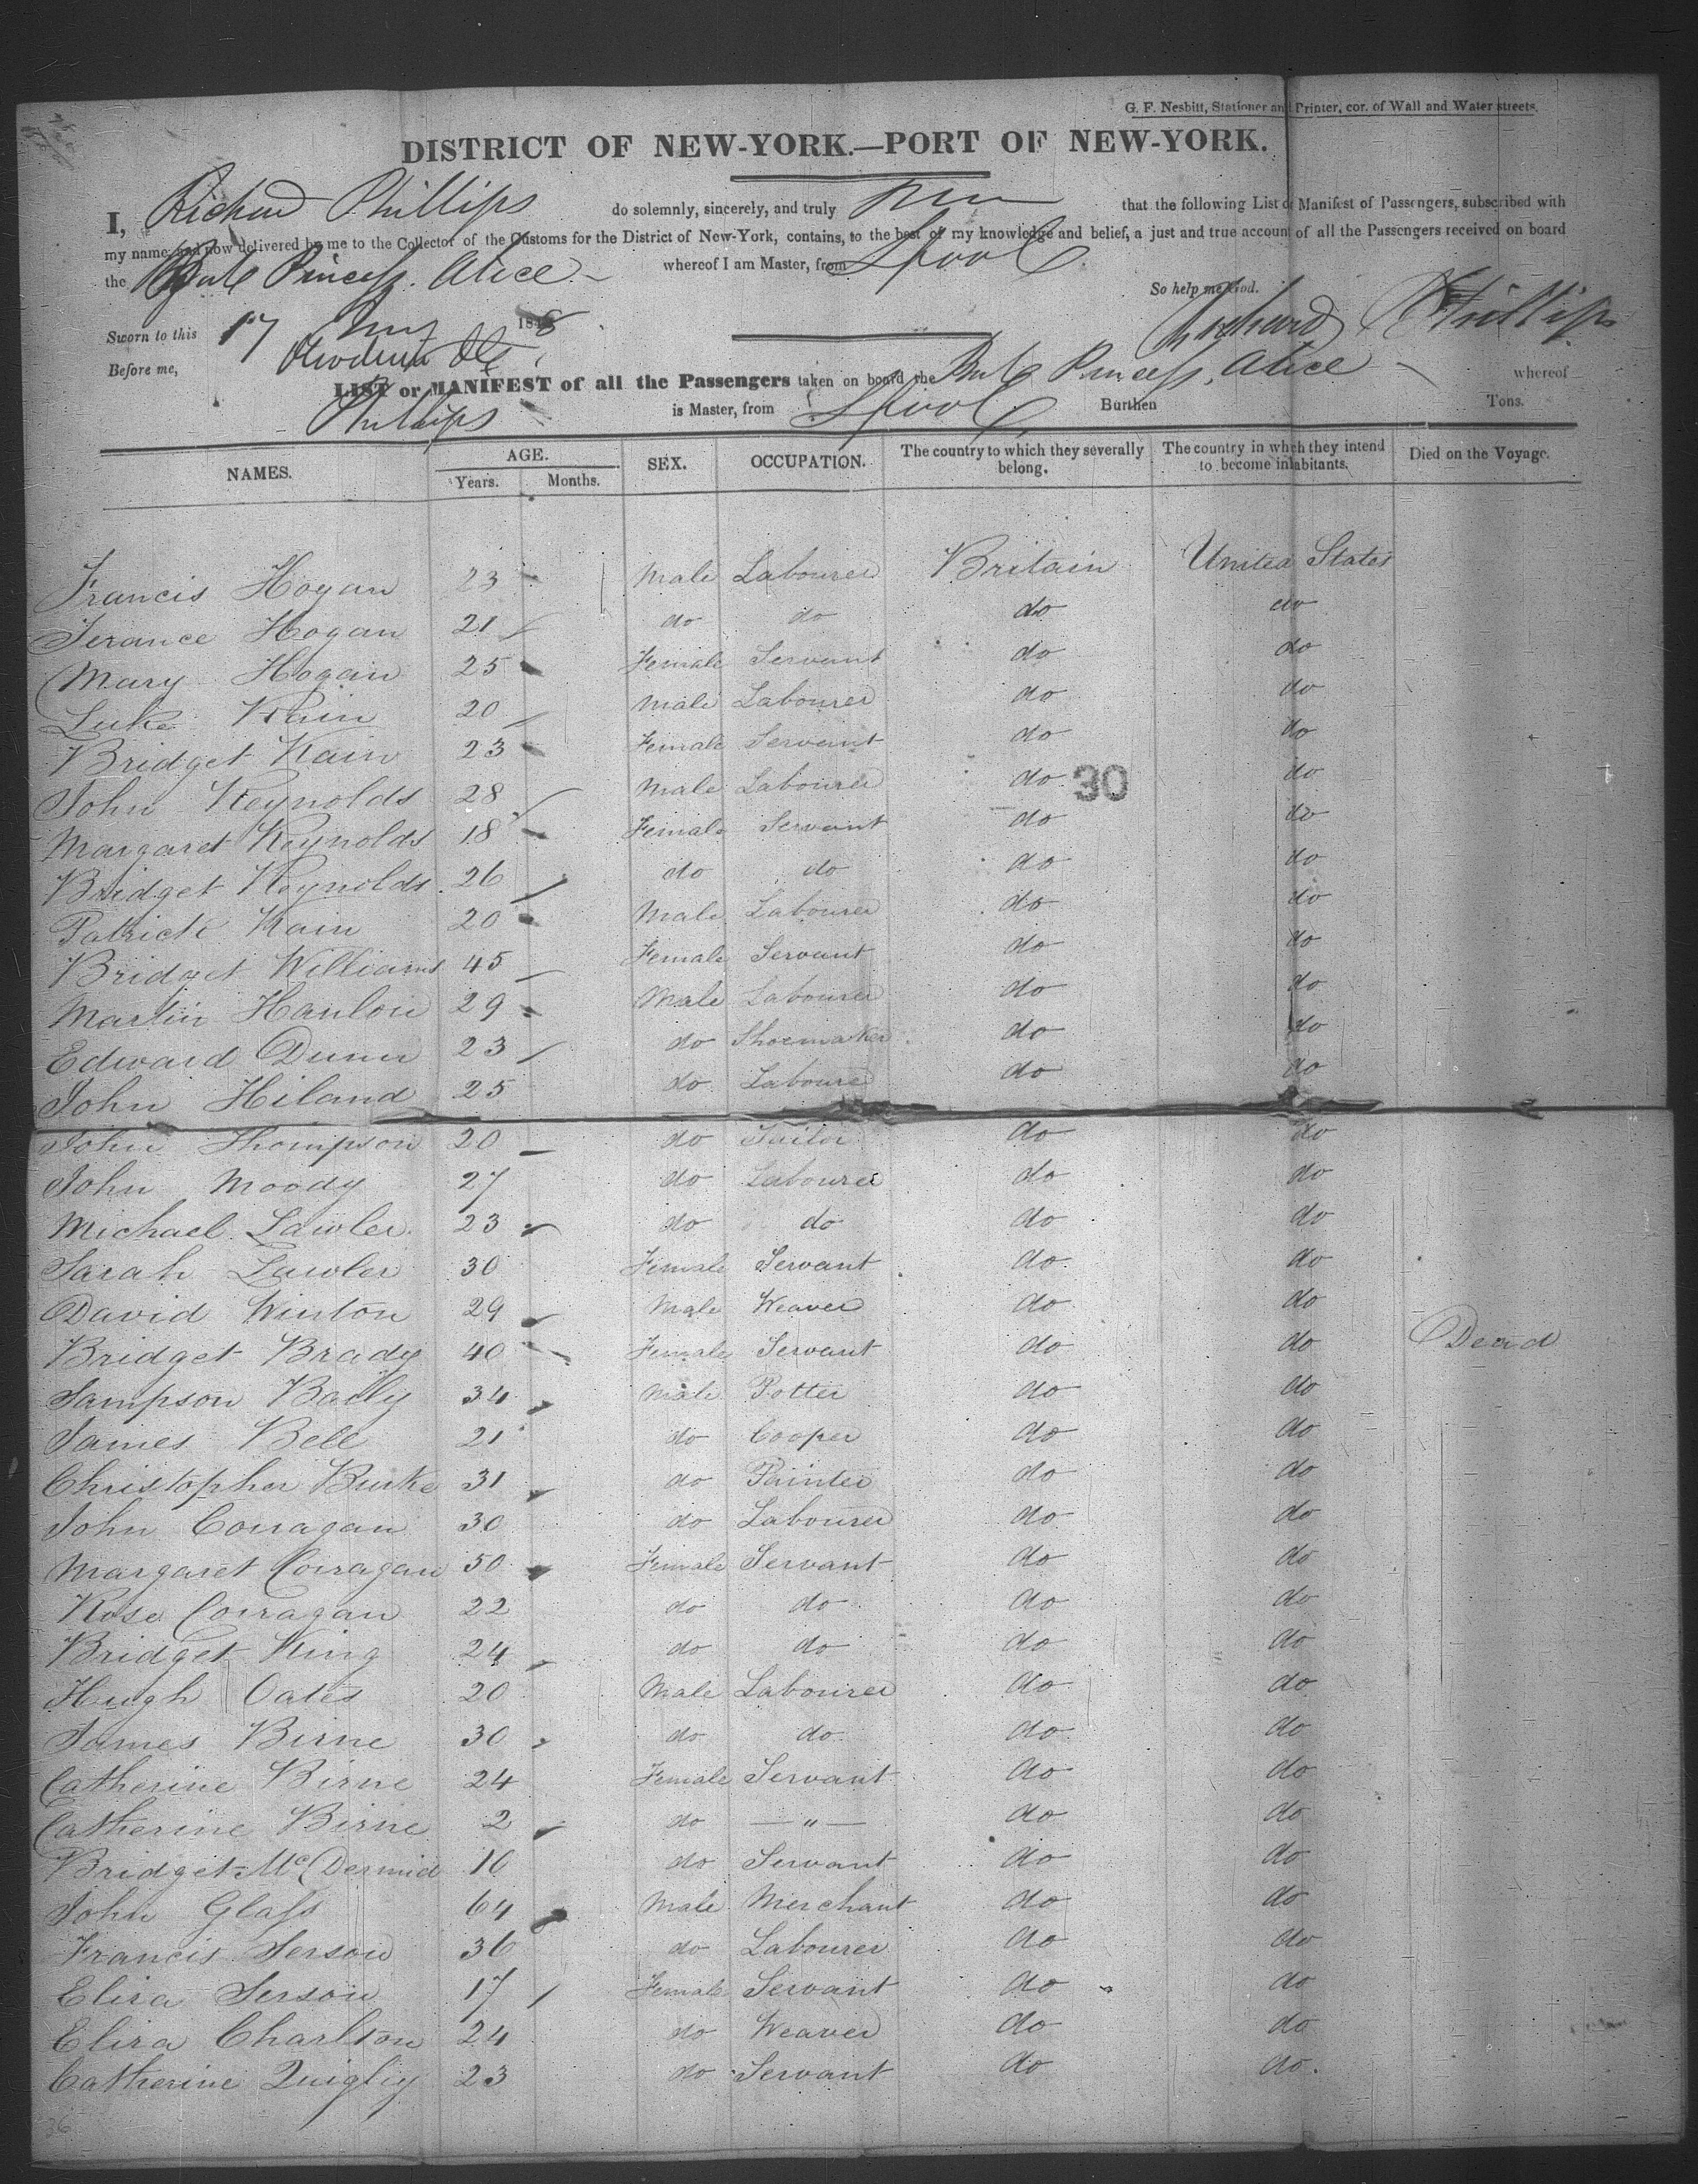 G. F. Nesbitt, Stationer and Printer, cor. of Wall and Water streets.
DISTRICT OF NEW-YORK.—PORT OF NEW-YORK.
I, Richard Phillips do solemnly, sincerely, and truly that the following List or Manifest of Passengers, subscribed with
my name, and now delivered by me to the Collector of the Customs for the District of New-York, contains, to the best of my knowledge and belief, a just and true account of all the Passengers received on board
the Princess Alice whereof I am Master, from Lpool
So help me God.
Sworn to this 17 184 Richard Phillips
Before me,
LIST or MANIFEST of all the Passengers taken on board the Princess Alice whereof
Phillips is Master, from Lpool Burthen Tons.
NAMES. AGE. Years. Months. SEX. OCCUPATION. The country to which they severally belong. The country in which they intend to become inhabitants. Died on the Voyage.
Francis Hogan 23 Male Labourer Britain United States
Terance Hogan 21 do do do do
Mary Hogan 25 Female Servant do do
Luke Kain 20 Male Labourer do do
Bridget Kain 23 Female Servant do do
John Reynolds 28 Male Labourer do 30 do
Margaret Reynolds 18 Female Servant do do
Bridget Reynolds 26 do do do do
Patrick Kain 20 Male Labourer do do
Bridget Williams 45 Female Servant do do
Martin Hanlon 29 Male Labourer do do
Edward Dunn 23 do Shoemaker do do
John Hiland 25 do Labourer do do
John Thompson 20 do Tailor do do
John Moody 27 do Labourer do do
Michael Lawler 23 do do do do
Sarah Lawler 30 Female Servant do do
David Winton 29 Male Weaver do do
Bridget Brady 40 Female Servant do do Dead
Sampson Baily 34 Male Potter do do
James Bell 21 do Cooper do do
Christopher Burke 31 do Painter do do
John Corragan 30 do Labourer do do
Margaret Corragan 50 Female Servant do do
Rose Corragan 22 do do do do
Bridget King 24 do do do do
Hugh Oates 20 Male Labourer do do
James Birne 30 do do do do
Catherine Birne 24 Female Servant do do
Catherine Birne 2 do — " — do do
Bridget McDermid 16 do Servant do do
John Glass 64 Male Merchant do do
Francis Serson 36 do Labourer do do
Eliza Serson 17 Female Servant do do
Eliza Charlton 24 do Weaver do do
Catherine Quigly 23 do Servant do do
36